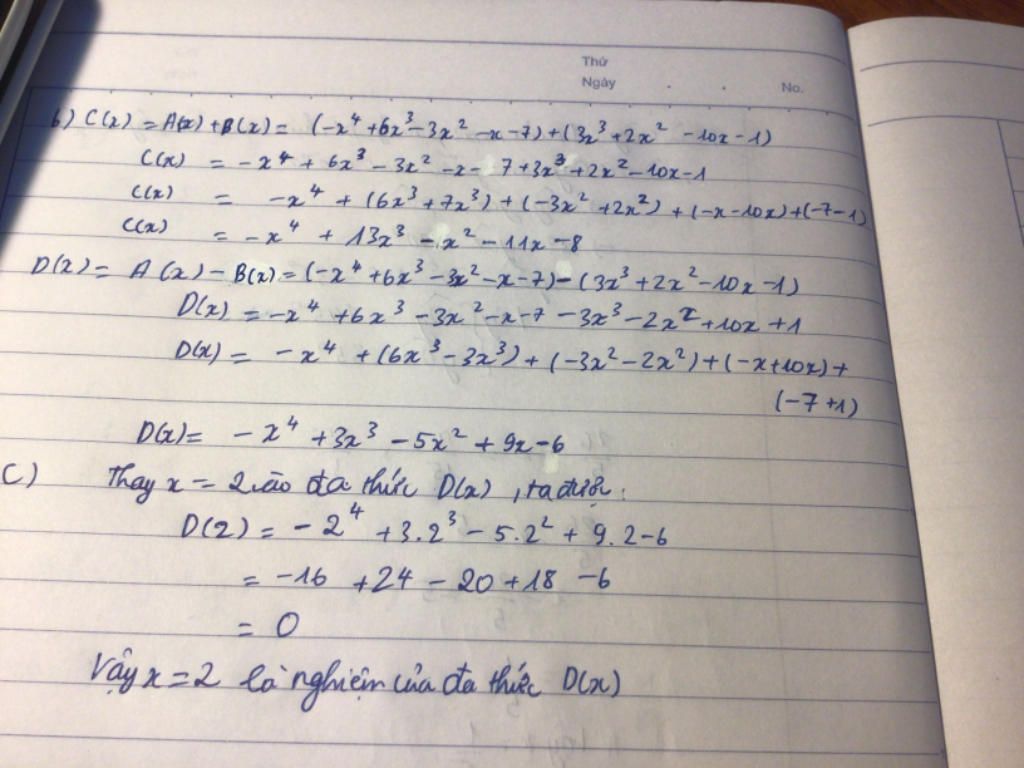 Thứ
Ngày
No.
b) C(x) = A(x) + B(x) = (-x⁴ + 6x³ - 3x² - x - 7) + (3x³ + 2x² - 10x - 1)
C(x) = -x⁴ + 6x³ - 3x² - x - 7 + 3x³ + 2x² - 10x - 1
C(x) = -x⁴ + (6x³ + 7x³) + (-3x² + 2x²) + (-x - 10x) + (-7 - 1)
C(x) = -x⁴ + 13x³ - x² - 11x - 8
D(x) = A(x) - B(x) = (-x⁴ + 6x³ - 3x² - x - 7) - (3x³ + 2x² - 10x - 1)
D(x) = -x⁴ + 6x³ - 3x² - x - 7 - 3x³ - 2x² + 10x + 1
D(x) = -x⁴ + (6x³ - 3x³) + (-3x² - 2x²) + (-x + 10x) +
(-7 + 1)
D(x) = -x⁴ + 3x³ - 5x² + 9x - 6
C) Thay x = 2 vào đa thức D(x), ta được:
D(2) = -2⁴ + 3.2³ - 5.2² + 9.2 - 6
= -16 + 24 - 20 + 18 - 6
= 0
Vậy x = 2 là nghiệm của đa thức D(x)